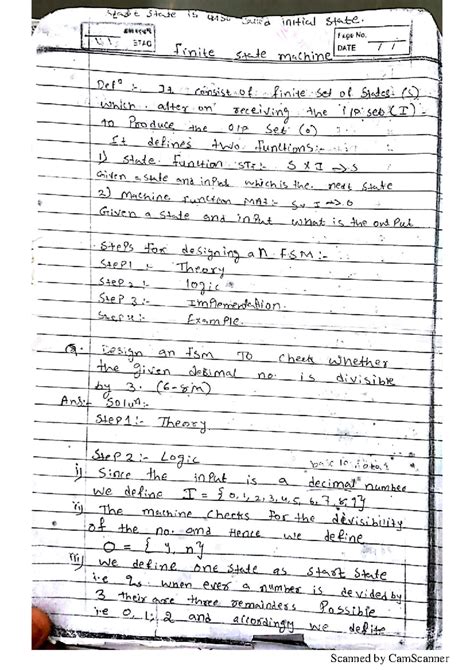 state is also called initial state.
Page No.
DATE / /
Finite state machine
Defn :- It consist of finite set of states (S)
which after on receiving the i/p set (I)
Produce the o/p set (O)
It defines two functions:-
1) State Function STF:- S X I → S
Given a state and input which is the next state
2) Machine Function MAF:- S X I → O
Given a state and input what is the output
Steps for designing an FSM:-
Step 1 :- Theory
Step 2 :- logic
Step 3 :- Implementation.
Step 4 :- Example.
Q. Design an fsm To check whether
the given decimal no. is divisible
by 3. (6-8M)
Ans:- Solun:-
Step 1:- Theory.
Step 2:- Logic
i) Since the input is a decimal number
we define I = { 0, 1, 2, 3, 4, 5, 6, 7, 8, 9}
ii) The machine checks for the divisibility
of the no. and Hence we define
O = { y, n}
iii) We define one state as start state
i.e qs. when ever a number is devided by
3 their are three remainders Possible
i.e 0, 1, 2 and accordingly we define
Scanned by CamScanner